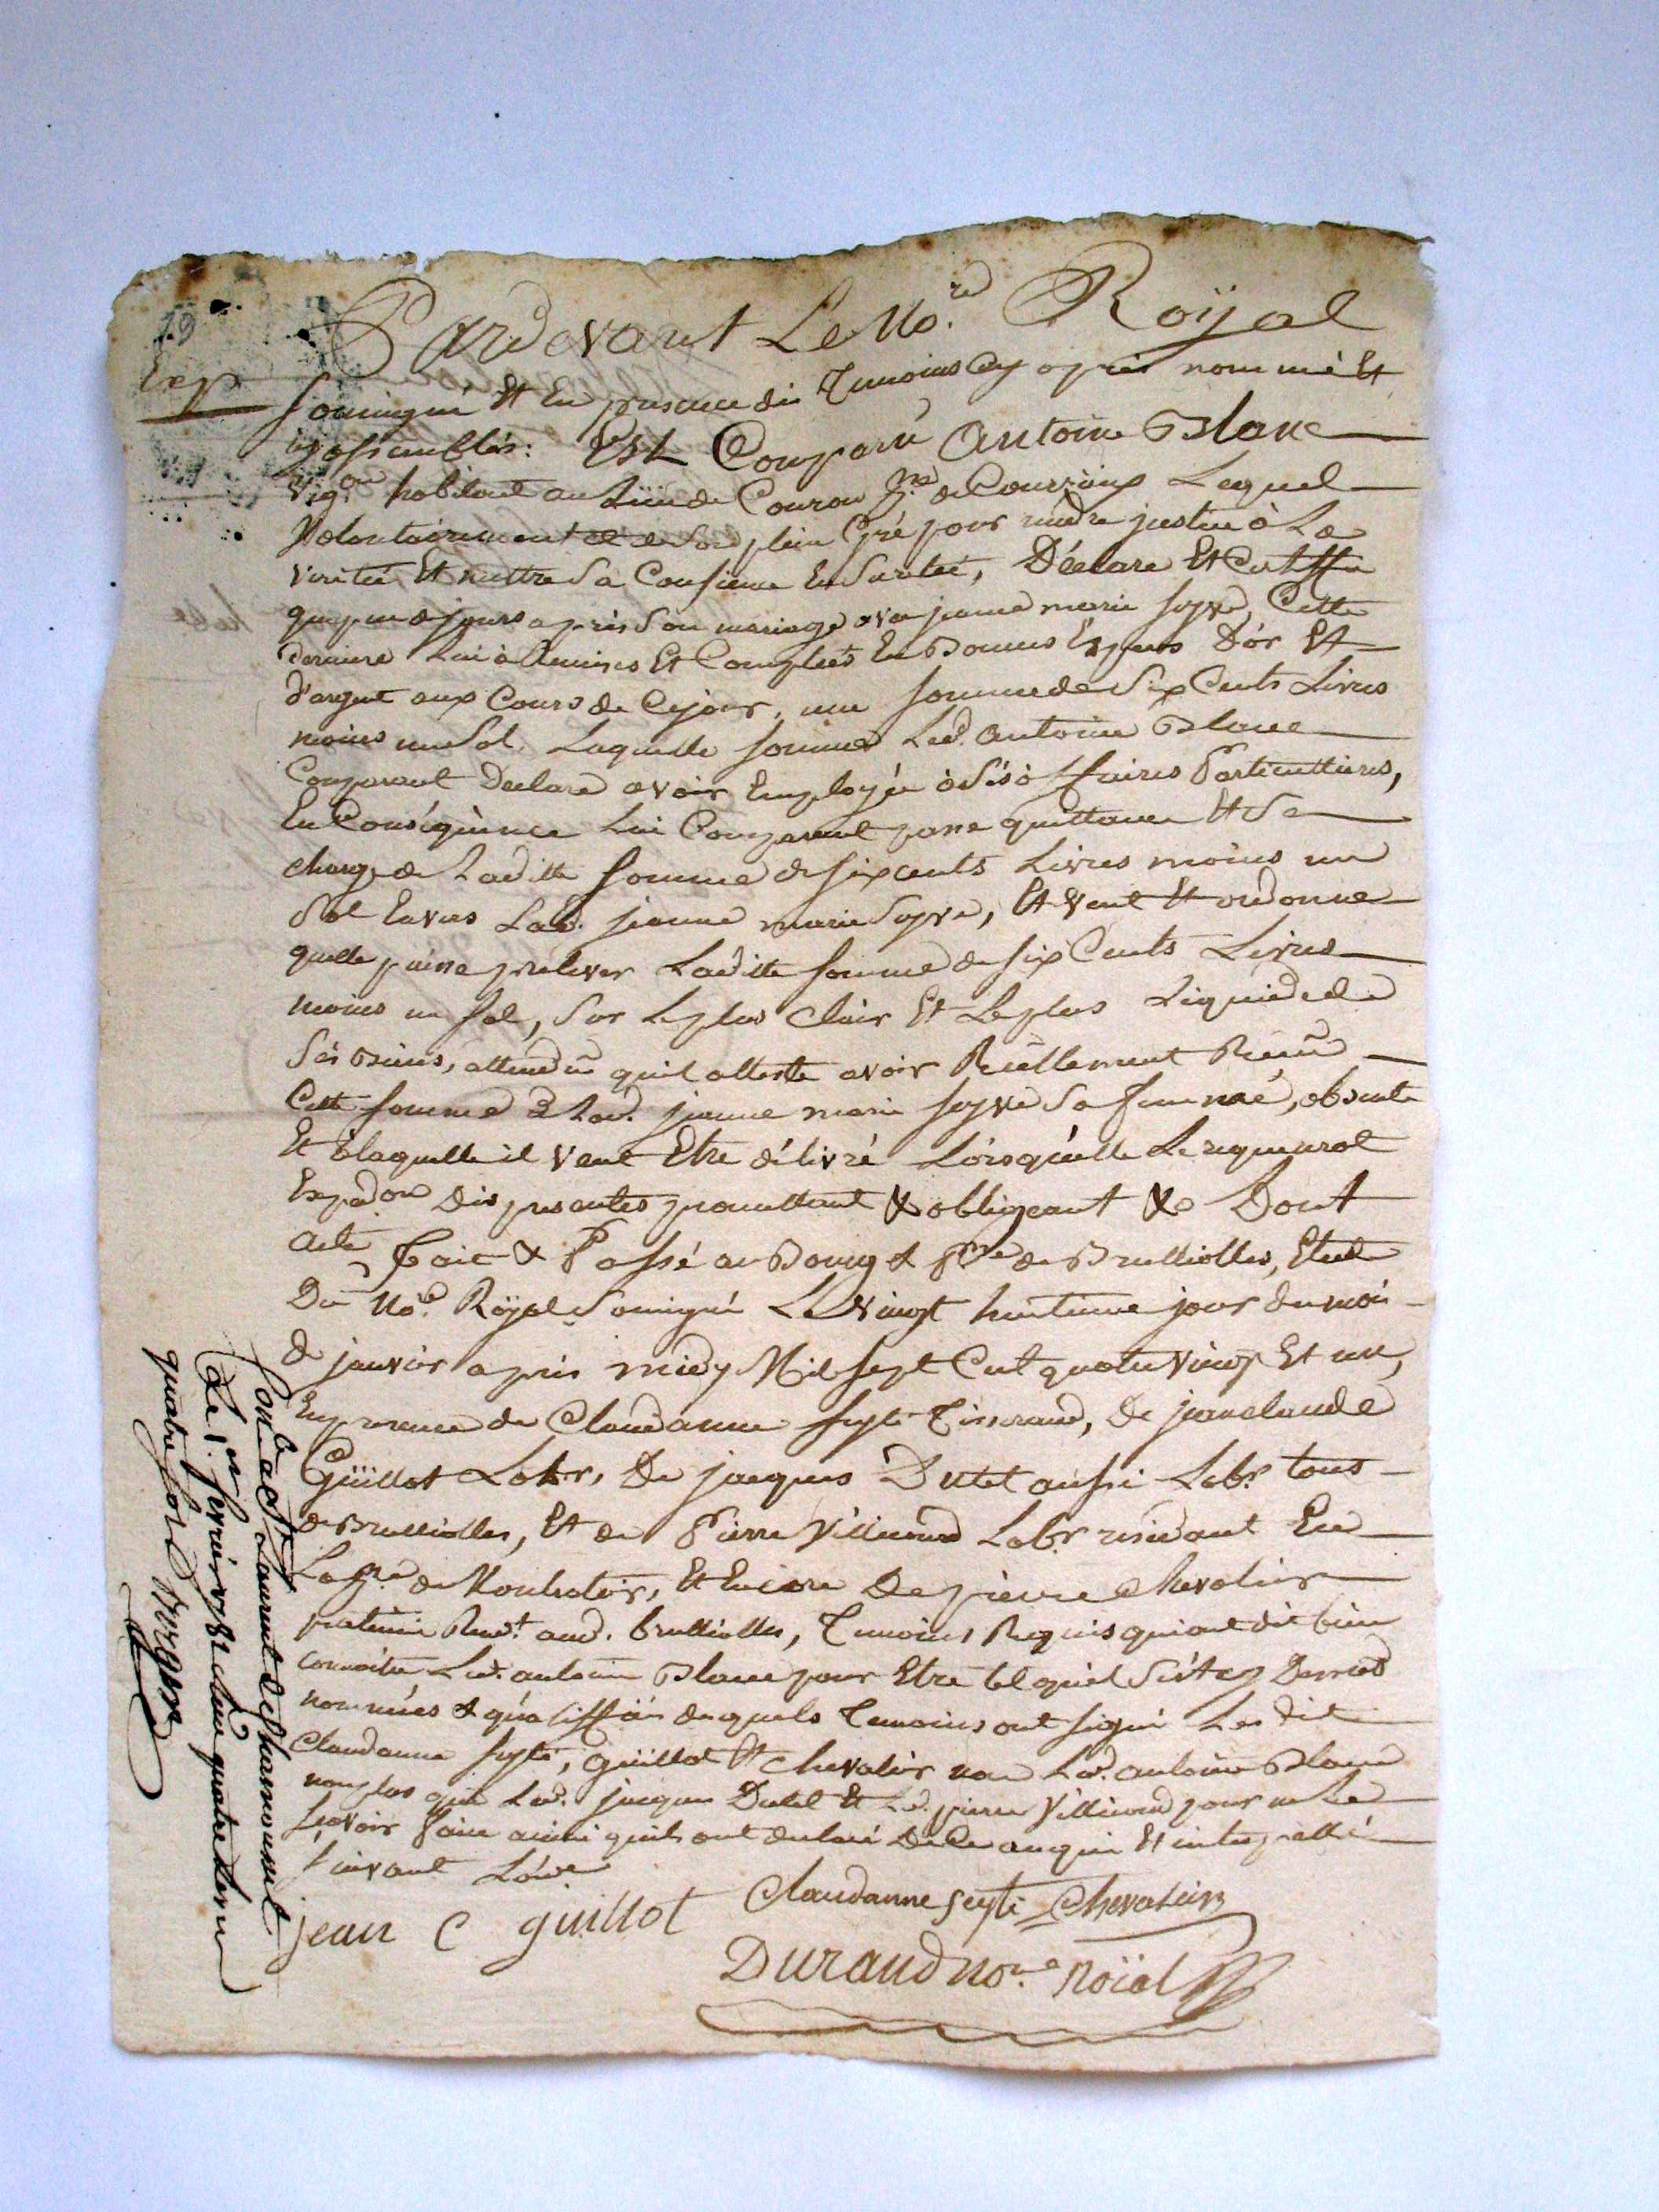 Exp
Pardevant Le No.re Roÿal
Soussigné Et En presence des Temoins Cy après nommé Et
assemblés: Est Comparu Antoine Blanc
Vig.on habitant au Lieu de Couron p.sse de Courzieux Lequel
Volontairement et de Son plein Gré pour rendre justice à La
verité Et mettre Sa Consience En Sureté, Déclare Et Certiffie
que peu de jours après Son mariage avec jeanne marie Seyve, Cette
derniere Lui à Remises Et Comptées En Bonnes Especes D'or Et
d'argent aux Cours de Cejour, une Somme de Six Cents Livres
moins un Sol, Laquelle Somme Led. antoine Blanc
Comparant Declare avoir Employée à Sés affaires Particullieres,
En Conséquence Lui Comparant passe quittance Et Se
charge de Laditte Somme de Six cents Livres moins un
Sol Envers Lad. jeanne marie Seyve, Et Veut Et ordonne
quelle puisse prelever Laditte Somme de Six Cents Livres
moins un Sol, Sur Le plus Clair Et Le plus Liquide de
Sés Biens, attendu qu'il atteste avoir Réellement Reçüe
Cette Somme de Lad. jeanne marie Seyve Sa femme, absente
Et à laquelle il veut Etre délivré Lorsqu'elle Le requerrat
Expedon Des presentes promettant & obligeant & Dont
acte, Fait & Passé au Bourg & P.sse de Brullioles, Etude
Du No.re Roÿal Soussigné Le Vingt huitieme jour du mois
de janvier après midy Mil Sept Cent quatre vingt Et un,
En presence de Claudanne Seyte Tisserand, De jean claude
Guillot Lab.r, De jacques Dutel aussi Lab.r tous
de Brullioles, Et de Pierre Villienard Lab.r residant En
La p.sse de Montrotier, Et Encore De pierre Chevalier
praticien Resid.t aud. Brullioles, Temoins Requis qui ont dit bien
connoitre Led. antoine Blanc pour Etre tel qu'il S'est cy Dessus
nommées & qualiffiées desquels Temoins ont Signé Les dit
Claudanne Seyte, Guillot Et Chevalier non Led. antoine Blanc
non plus que Led. jacques Dutel Et Led. pierre Villienard pour ne Le
Scavoir Faire ainsi qu'ils ont declaré De Ce enquis Et interpellé
Suivant L'ord.e
jean C guillot Claudanne seyte Chevalier
Durand no.re Roïal
Con.lé à St Laurent de Chamousset
Le 1.er fevrier 1781 Reçu quatre livres
quatre sols